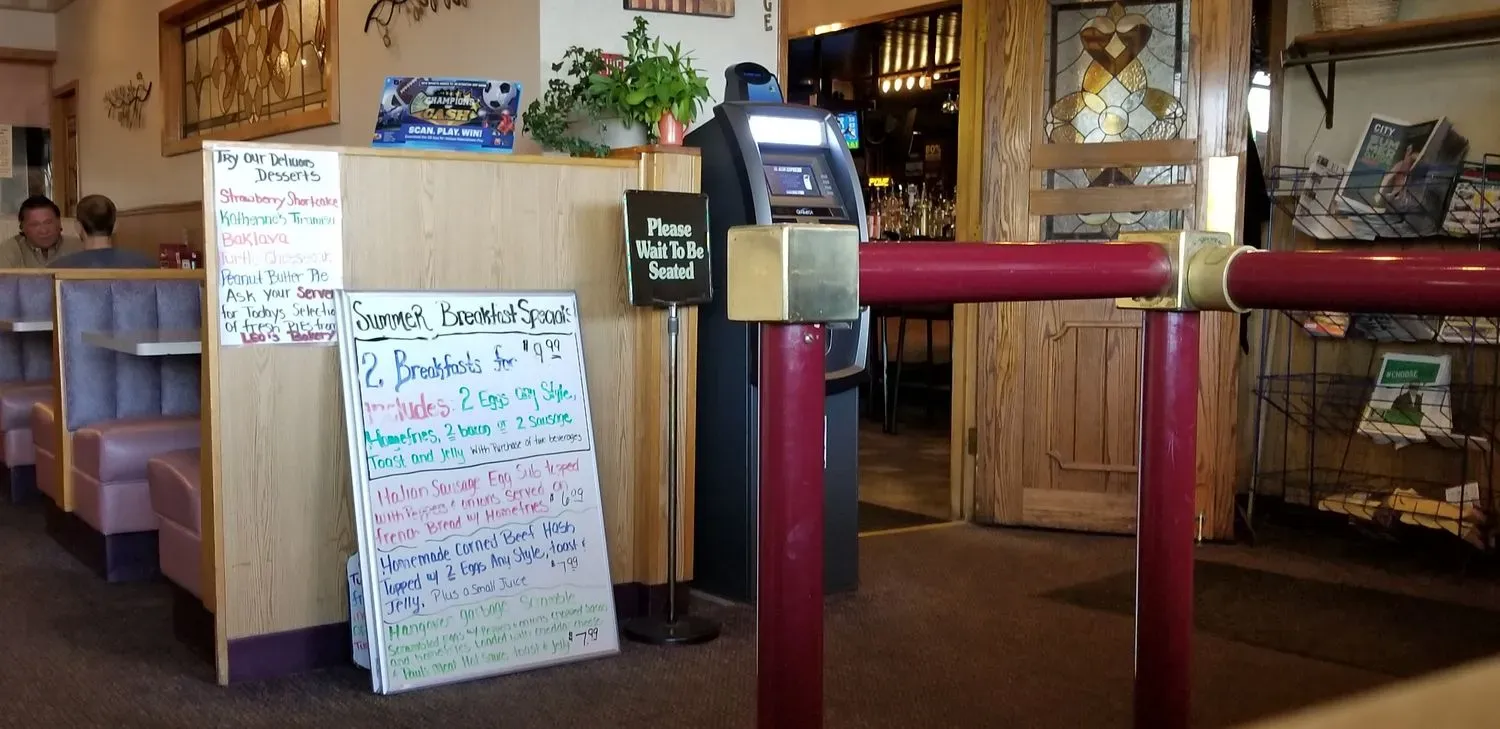 Try our Delicious
Desserts
Strawberry Shortcake
Katherine's Tiramisu
Baklava
Turtle Cheesecake
Peanut Butter Pie
Ask your Server
for Todays Selection
of fresh Pies from
Leo's Bakery
CHAMPIONS
CASH
SCAN. PLAY. WIN!
Please
Wait To Be
Seated
Summer Breakfast Specials!
2 Breakfasts for $9.99
includes: 2 Eggs any Style,
Homefries, 2 bacon or 2 sausage
Toast and Jelly with Purchase of two beverages
Italian Sausage Egg Sub topped
with Peppers & onions served on
french Bread w/ Homefries $6.99
Homemade Corned Beef Hash
Topped w/ 2 Eggs Any Style, toast &
Jelly, Plus a Small Juice $7.99
Hangover garbage Scramble
Scrambled Eggs w/ Peppers & onions crumbled bacon
and homefries Loaded with cheddar cheese
& Paul's Meat Hot Sauce toast & Jelly $7.99
CITY
#CHOOSE